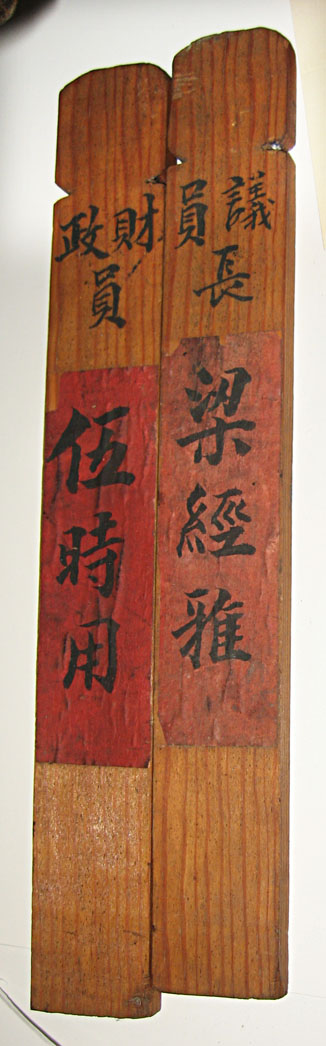 議員長
梁經雅
財政員
伍時用